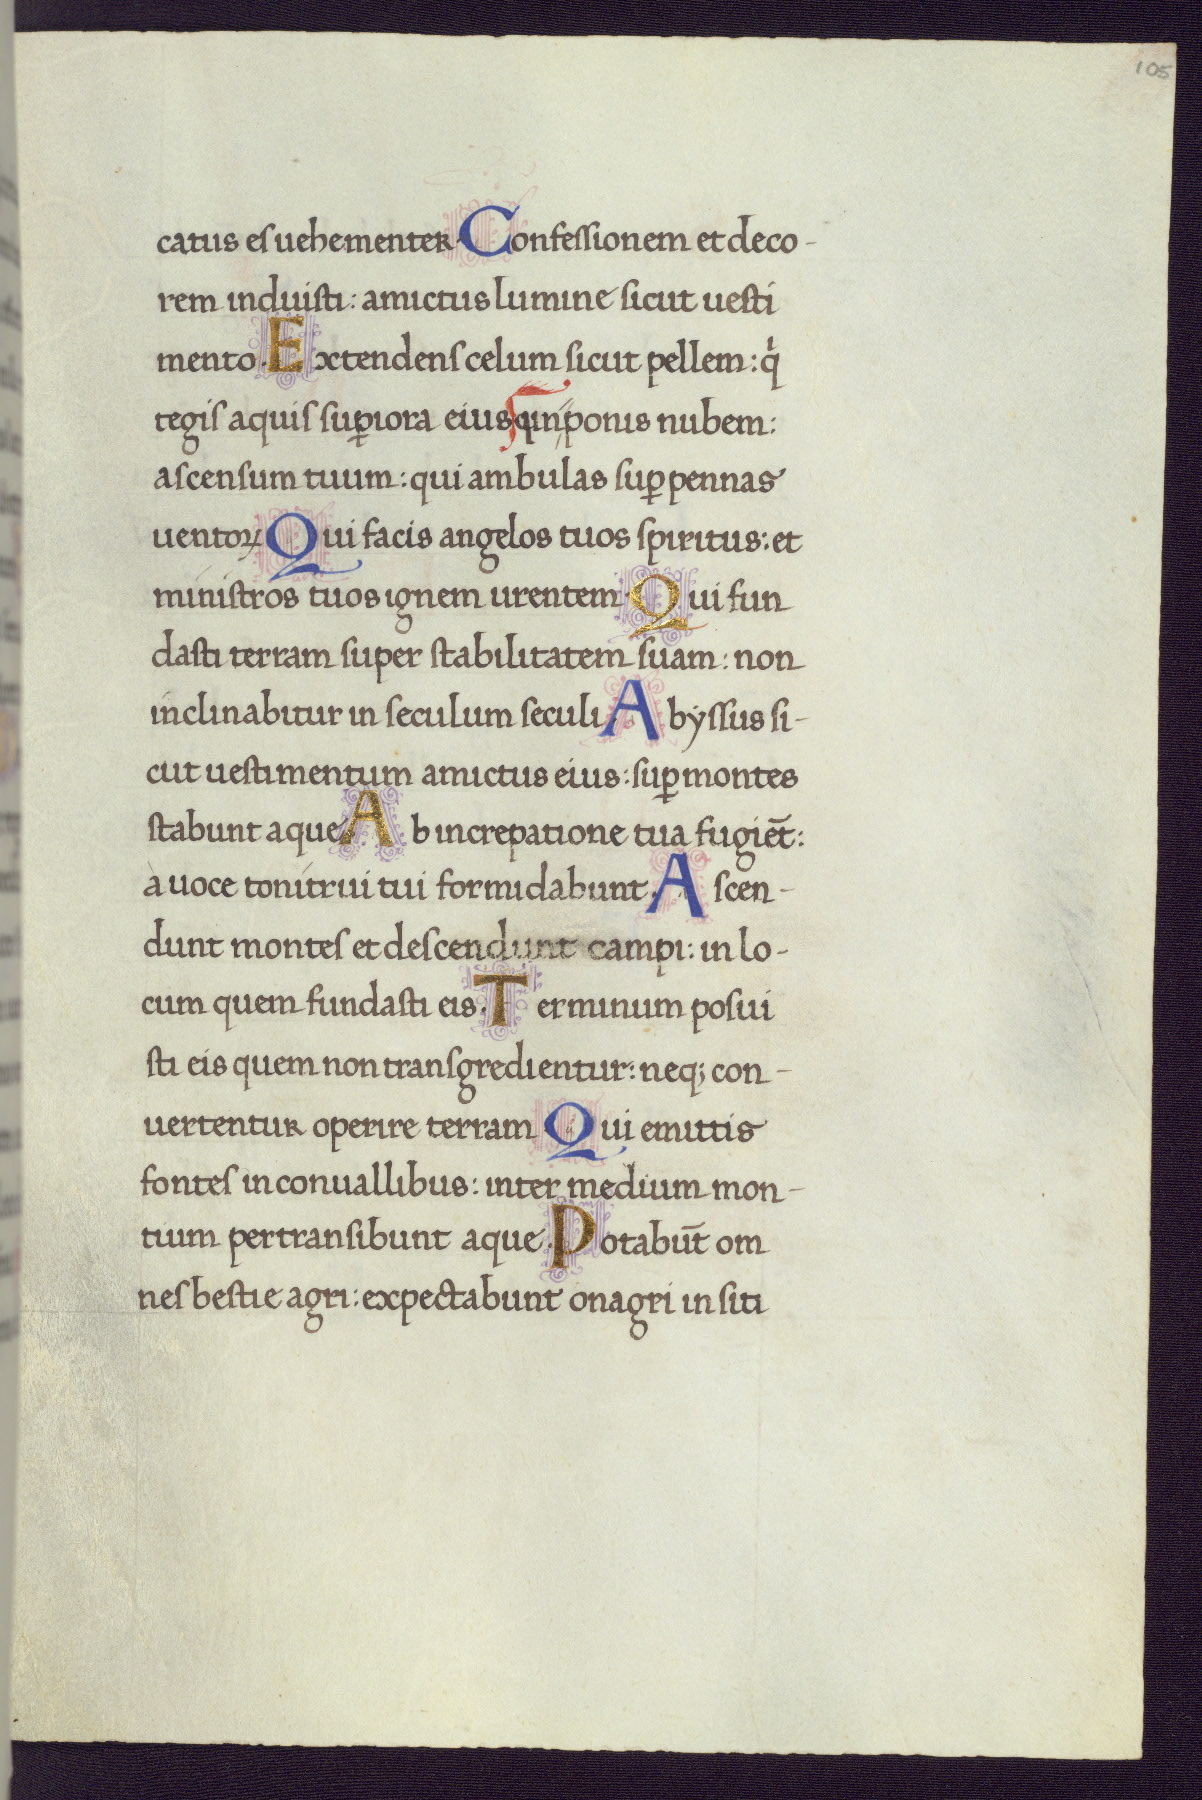 105
catus es uehementer. Confessionem et deco-
rem induisti: amictus lumine sicut uesti
mento. Extendens celum sicut pellem: qⁱ
tegis aquis suꝑiora eius qui ponis nubem:
ascensum tuum: qui ambulas suꝑ pennas
uentoꝝ Qui facis angelos tuos spiritus: et
ministros tuos ignem urentem. Qui fun
dasti terram super stabilitatem suam: non
inclinabitur in seculum seculi. Abyssus si-
cut uestimentum amictus eius: suꝑ montes
stabunt aque Ab increpatione tua fugiēt:
a uoce tonitrui tui formidabunt. Ascen-
dunt montes et descendunt campi: in lo-
cum quem fundasti eis. Terminum posui
sti eis quem non transgredientur: neq; con-
uertentur operire terram Qui emittis
fontes in conuallibus: inter medium mon-
tium pertransibunt aque. Potabūt om
nes bestie agri: expectabunt onagri in siti